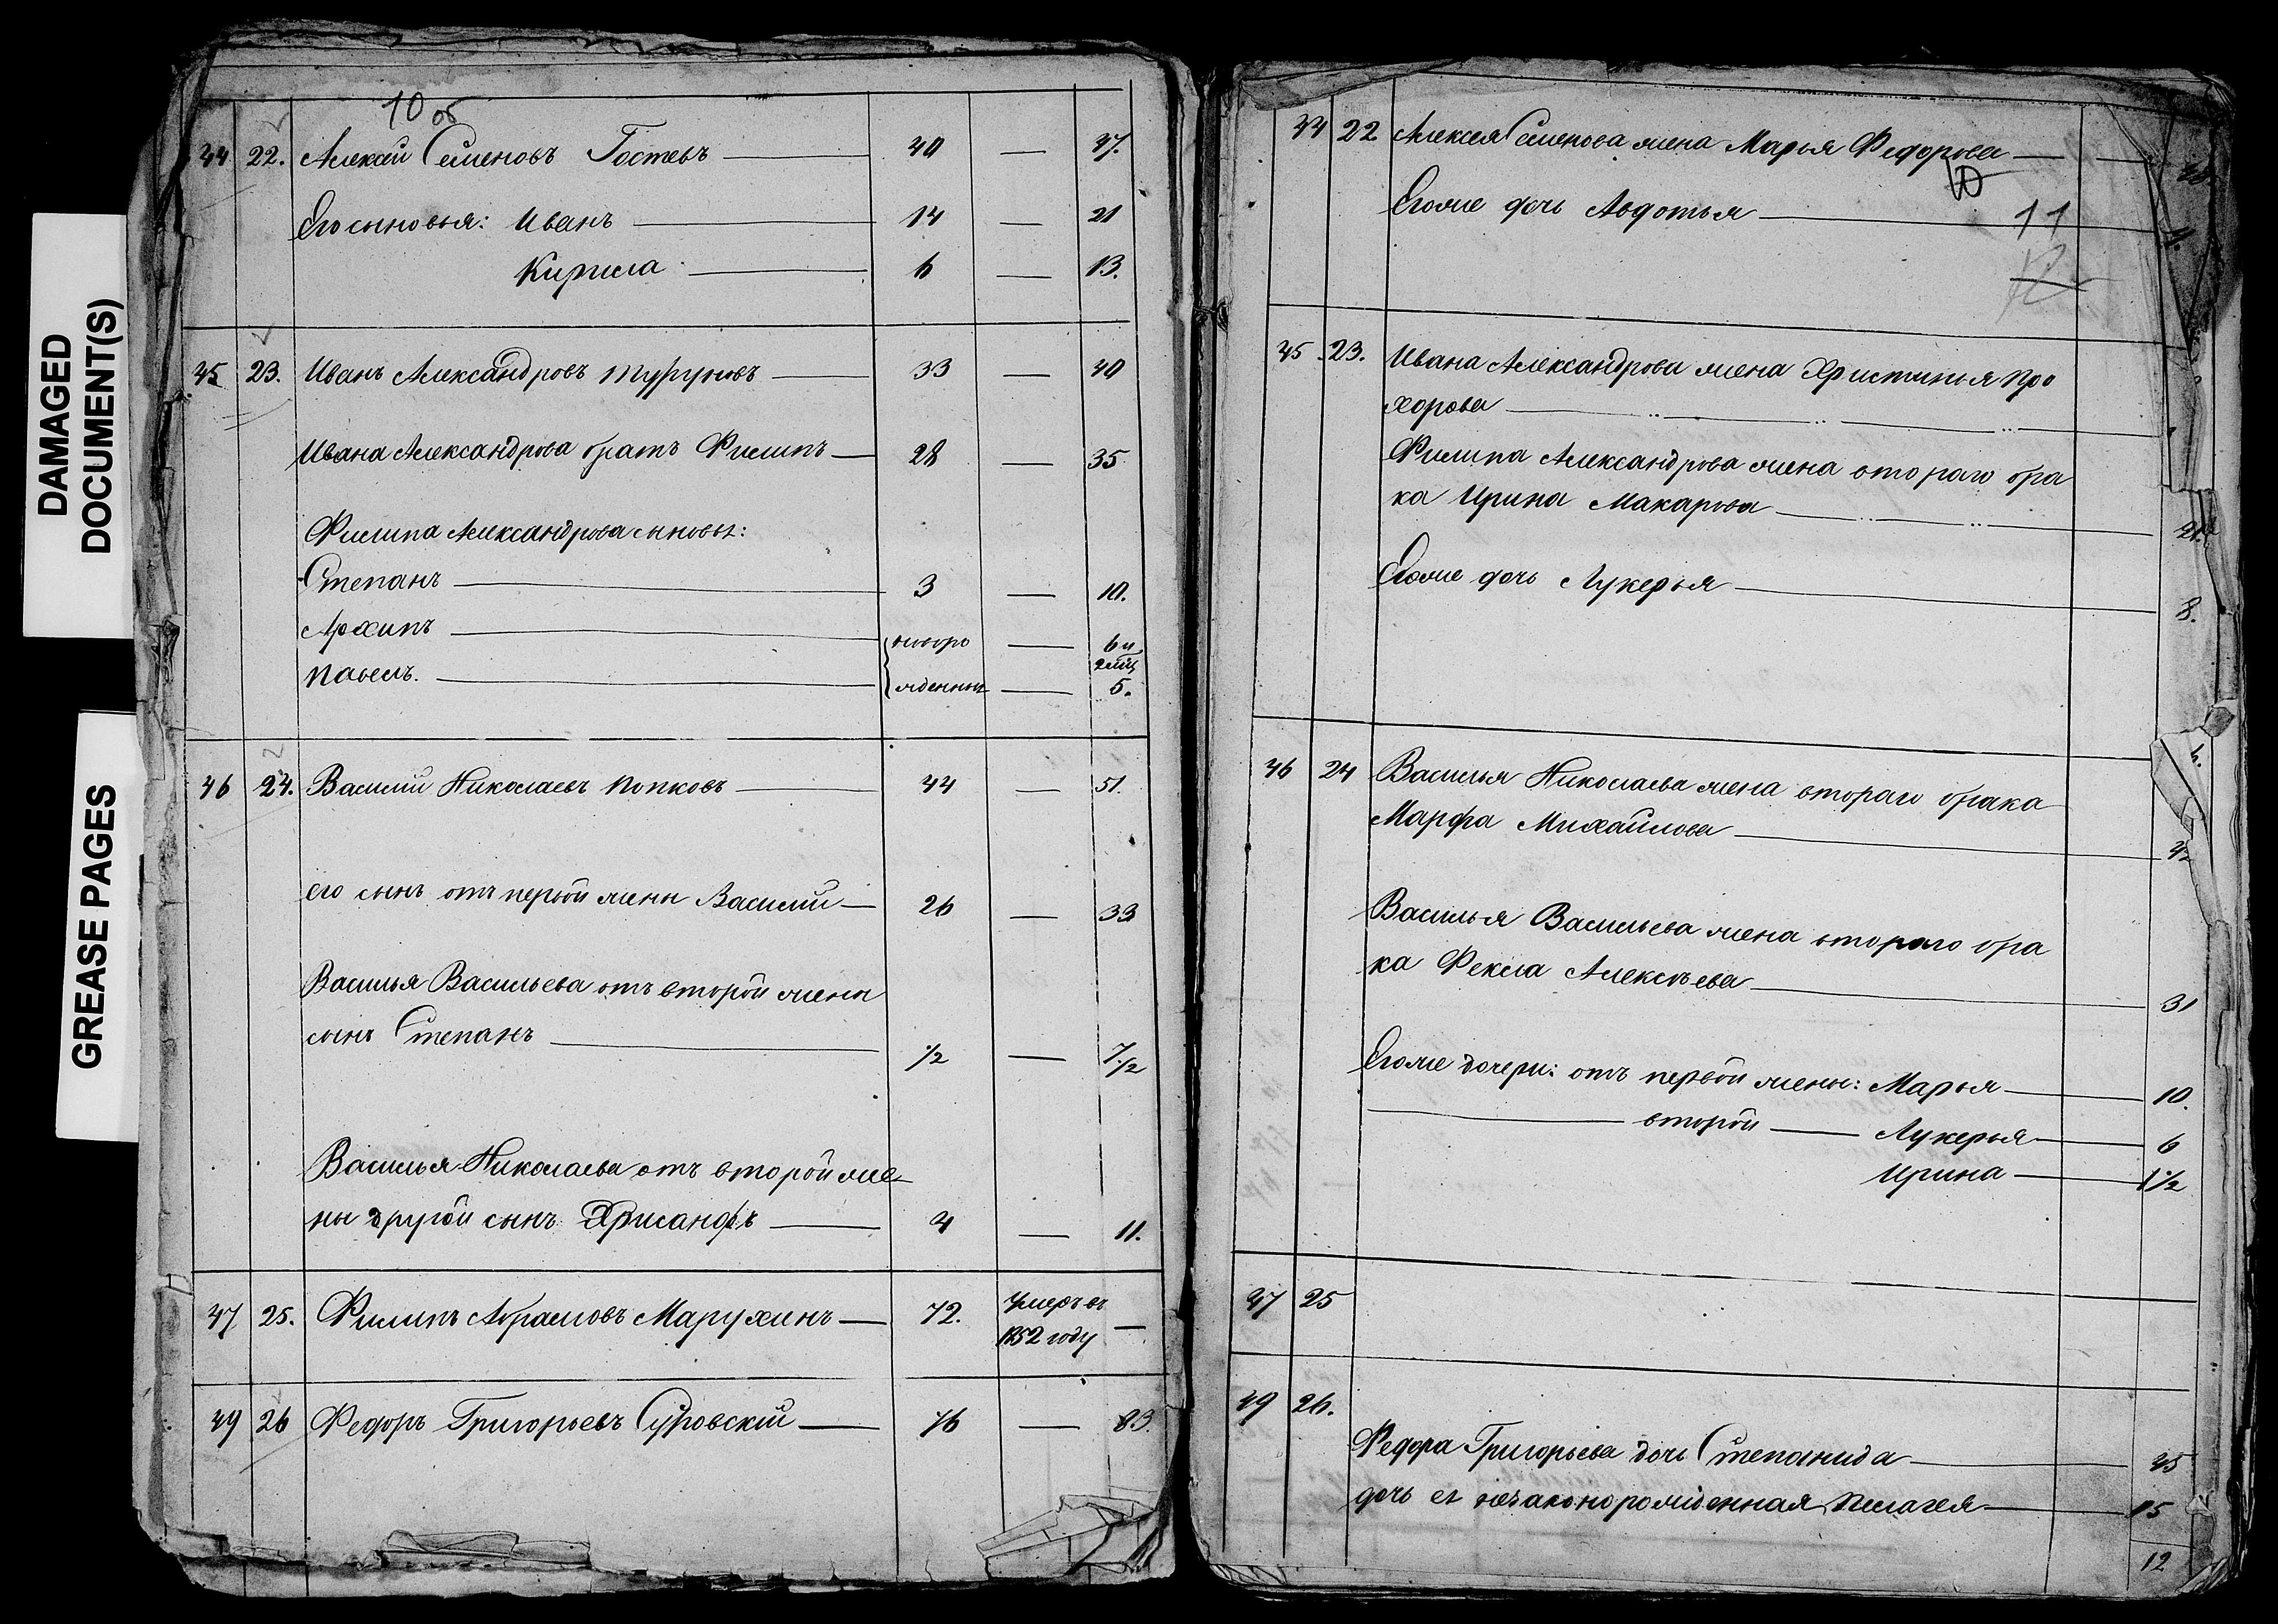 DAMAGED
DOCUMENT(S)
GREASE PAGES
10 об
44 22. Алексей Семеновъ Гостевъ — 40 — 47.
Его сыновья: Иванъ — 14 — 21
Кирила — 6 — 13.
45 23. Иванъ Александровъ — 33 — 40
Ивана Александрова братъ Филипъ — 28 — 35
Филипа Александрова сыновья:
Степанъ — 3 — 10.
Архипъ — новоро — 6 и 2 мц
Павелъ. — жденныи — 5.
46 24. Василий Николаевъ Попковъ — 44 — 51.
его сынъ отъ первой жены Василий — 26 — 33
Василья Васильева отъ второй жены
сынъ Степанъ — 1/2 — 7 1/2
Василья Николаева отъ второй же-
ны другой сынъ Хрисанфъ — 4 — 11.
47 25. Филипъ Абрамовъ Марухинъ — 72. умеръ въ —
1852 году
49 26 Федоръ Григорьевъ Суровский — 76 — 83.
44 22 Алексея Семенова жена Марья Федорова —
10
Его же дочь Авдотья —
11
12
45. 23. Ивана Александрова жена Христинья Про
хорова —
Филипа Александрова жена втораго бра
ка Ирина Макарова —
Его же дочь Лукерья — 8.
46 24 Василья Николаева жена втораго брака
Марфа Михайлова — 42
Василья Васильева жена втораго бра
ка Фекла Алексѣева — 31
Его же дочери: отъ первой жены: Марья — 10.
— второй — Лукерья — 6
Ирина — 1 1/2
47 25
49 26.
Федора Григорьева дочь Степанида — 45
дочь ея незаконорожденная Пелагея — 15
12